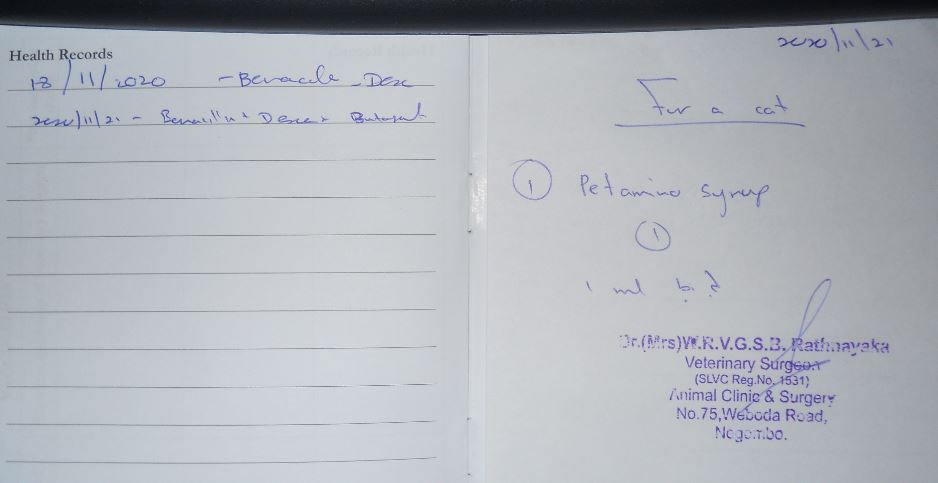 Health Records
18/11/2020 - Dex
2020/11/21 -
2020/11/21
For a cat
① Petamino syrup
①
1 ml b.d
Dr.(Mrs)W.R.V.G.S.B. Rathnayaka
Veterinary Surgeon
(SLVC Reg.No. 1531)
Animal Clinic & Surgery
No.75,Weboda Road,
Negombo.